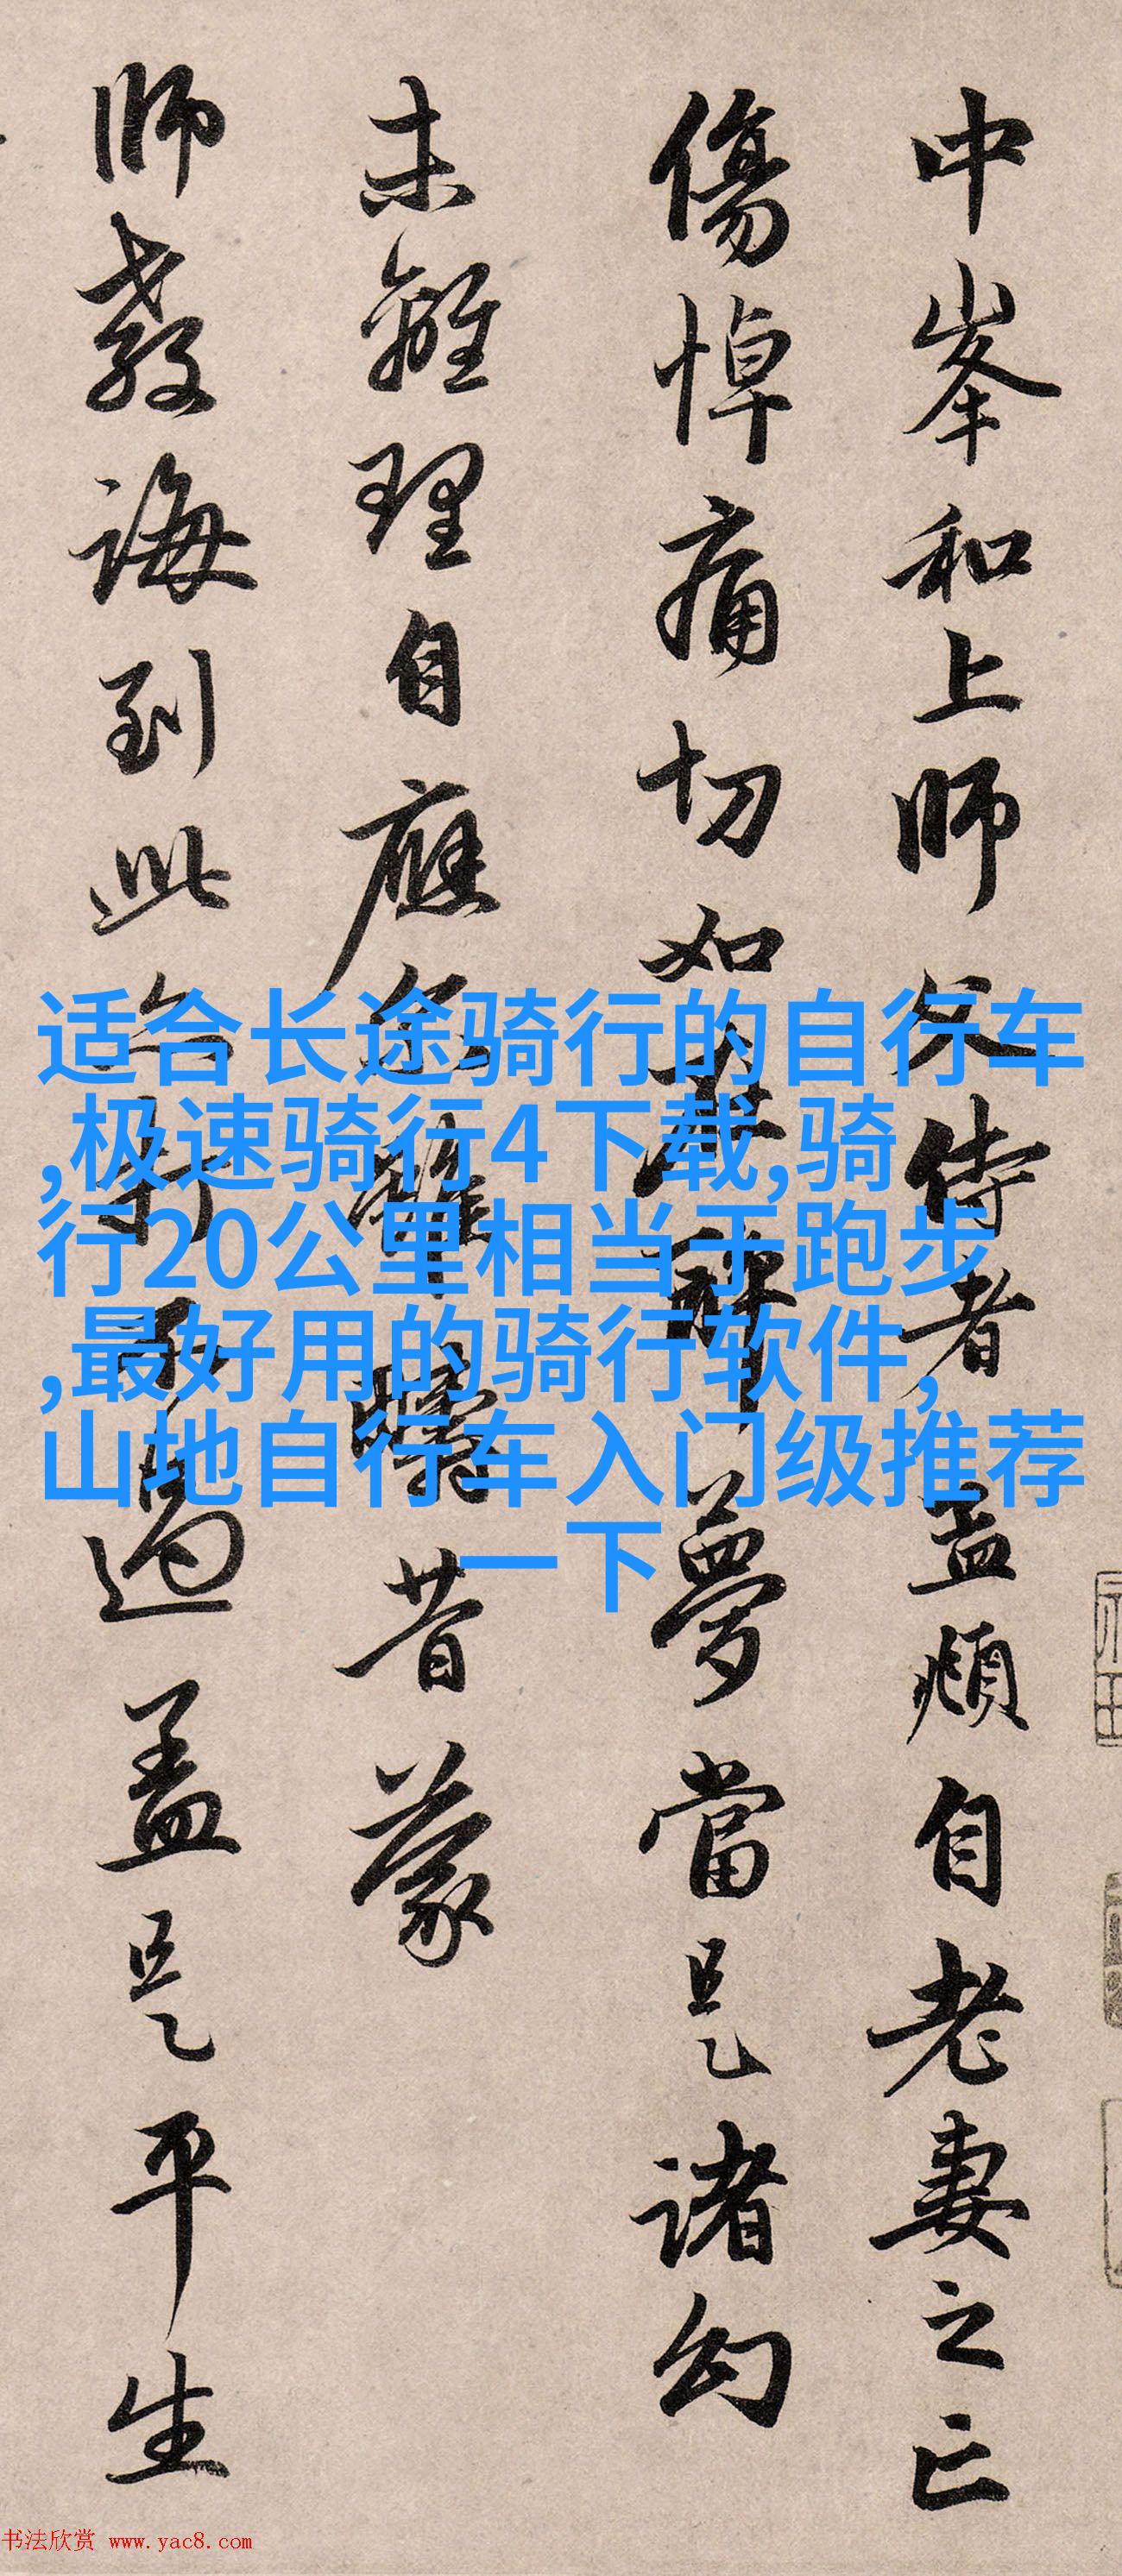 中峯和上師父侍者孟頫自老妻之亡
傷悼痛切如在醉夢當是諸幻
未離理自應尔雖畴昔蒙
師教誨到此亦打不過盖是平生
适合长途骑行的自行车
,极速骑行4下载,骑
行20公里相当于跑步
,最好用的骑行软件,
山地自行车入门级推荐
一下
书法欣赏 www.yac8.com